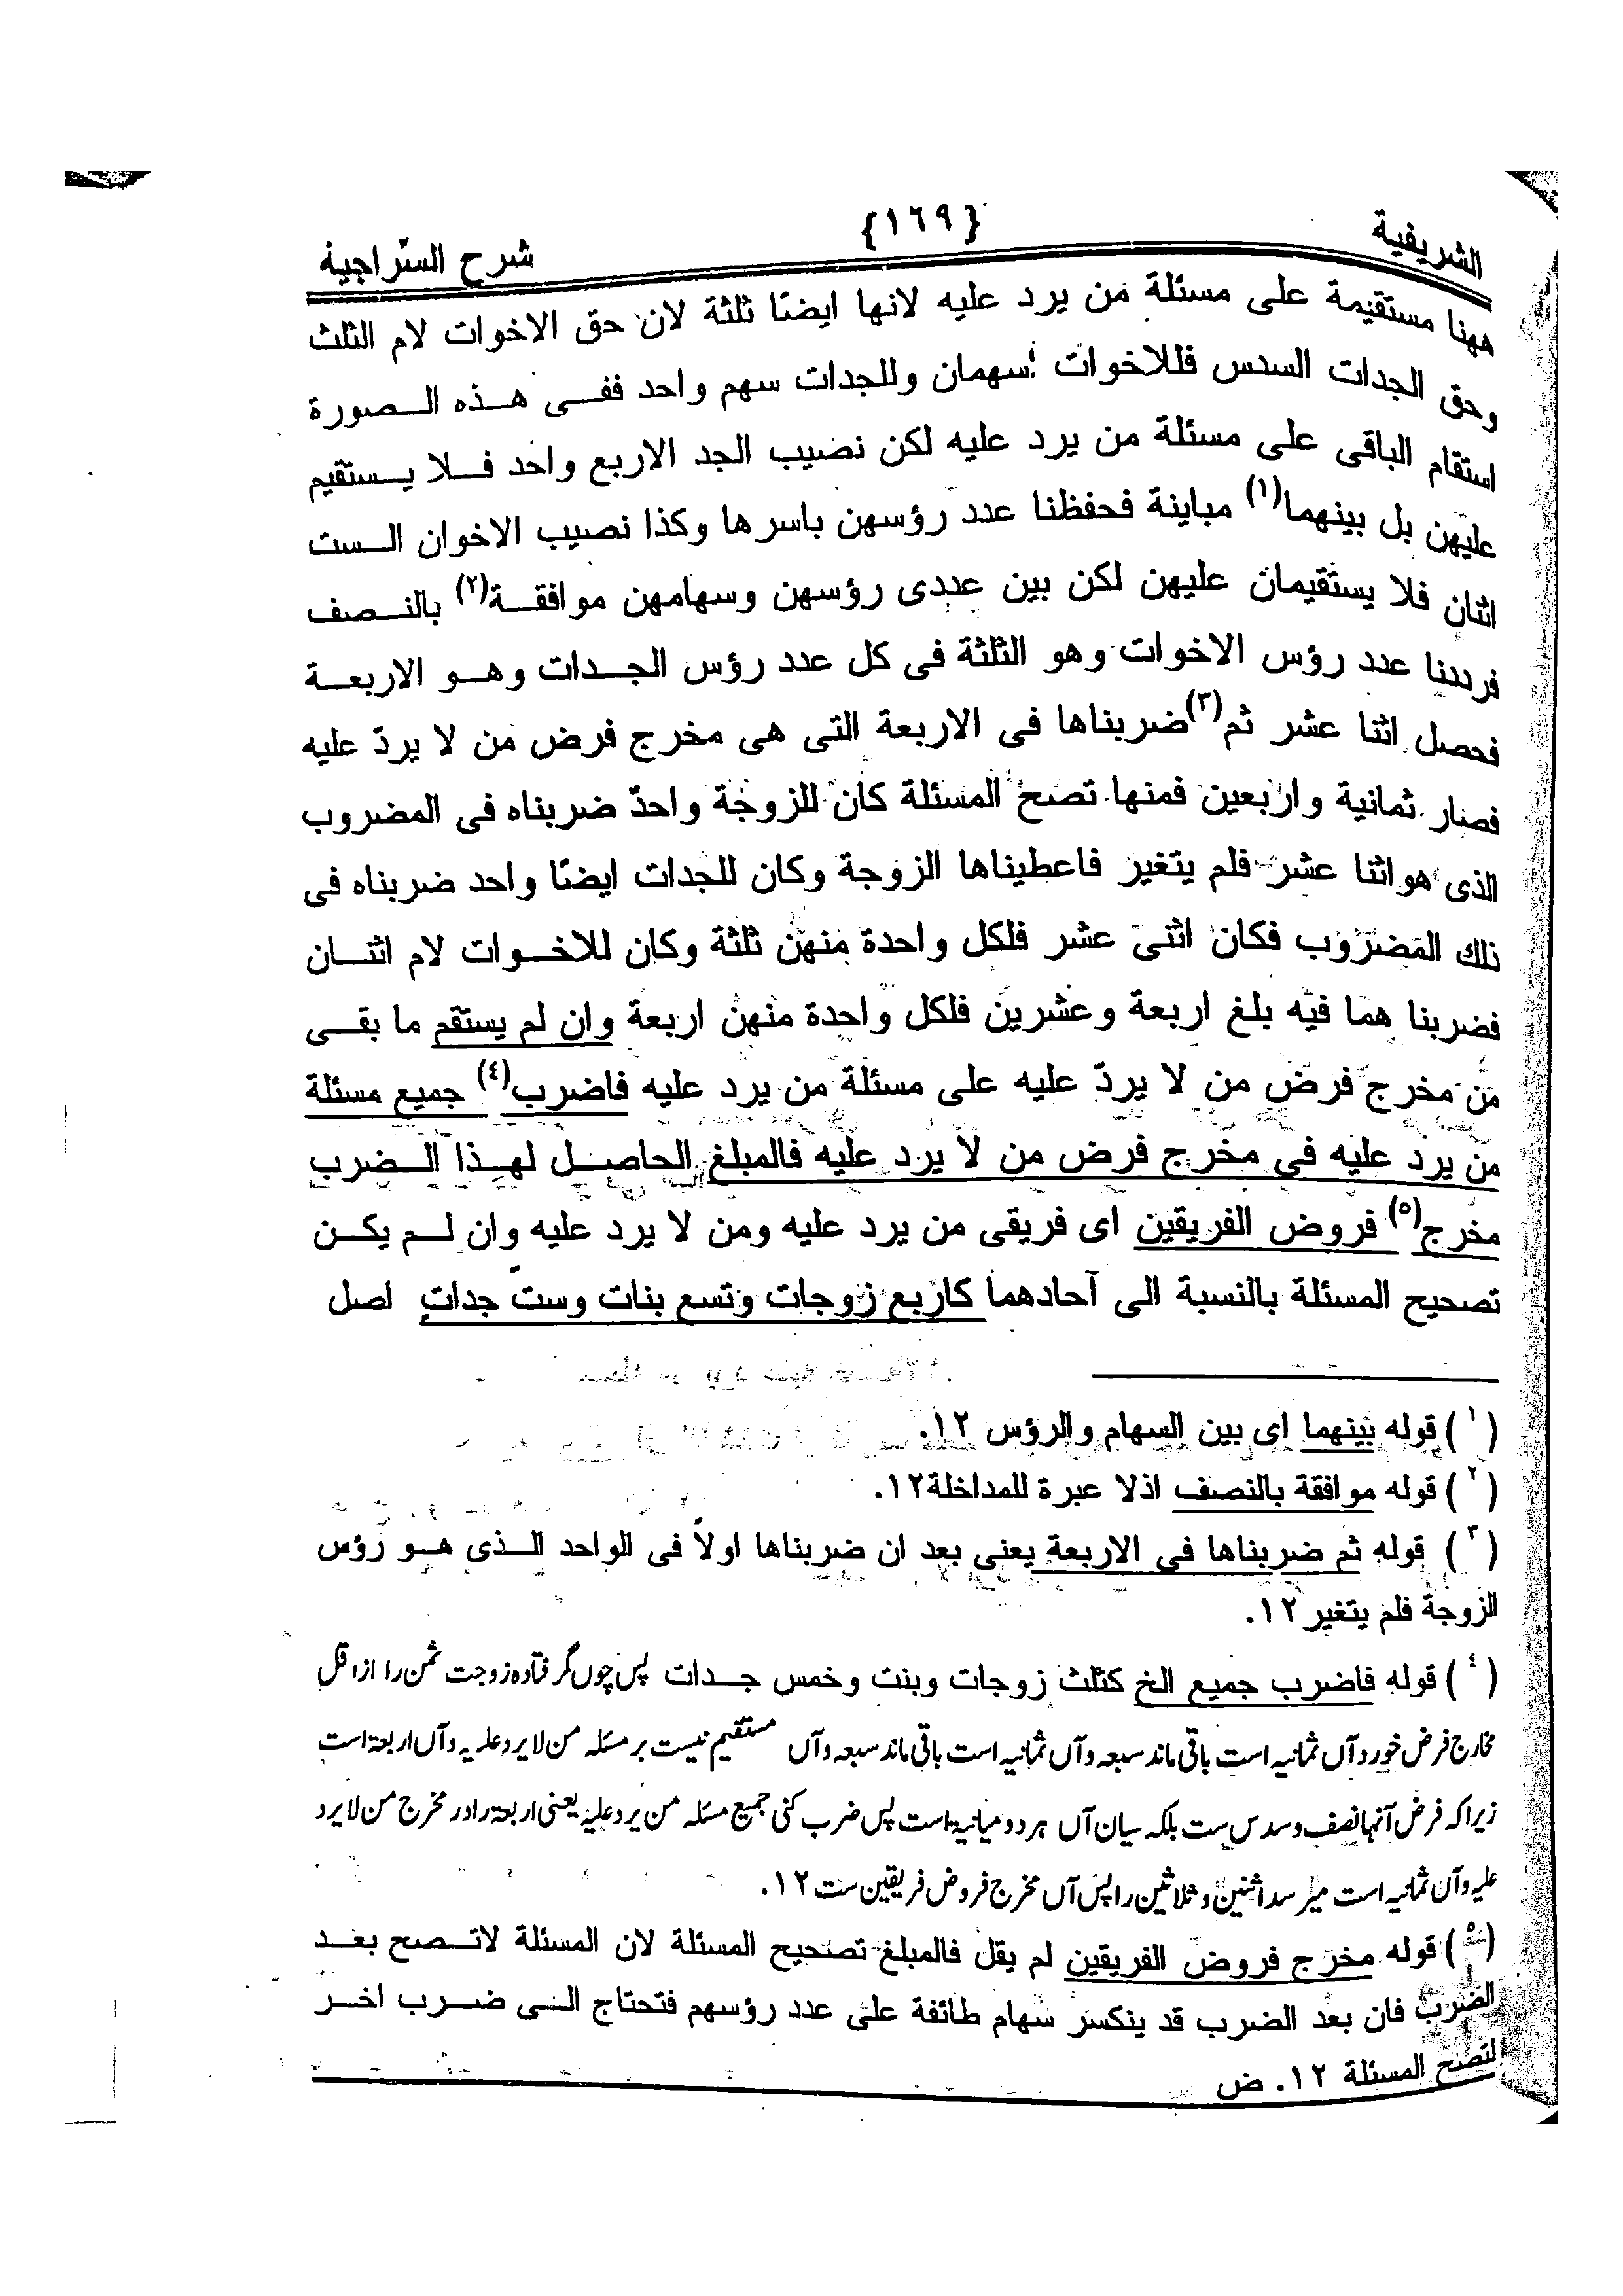 الشريفية
{١٦٩}
شرح السّراجية
ههنا مستقيمة على مسئلة من يرد عليه لانها ايضًا ثلثة لان حق الاخوات لام الثلث
وحق الجدات السدس فللاخوات سهمان وللجدات سهم واحد ففى هذه الصورة
استقام الباقى على مسئلة من يرد عليه لكن نصيب الجد الاربع واحد فلا يستقيم
عليهن بل بينهما(١) مباينة فحفظنا عدد رؤسهن باسرها وكذا نصيب الاخوان الست
اثنان فلا يستقيمان عليهن لكن بين عددى رؤسهن وسهامهن موافقة(٢) بالنصف
فرددنا عدد رؤس الاخوات وهو الثلثة فى كل عدد رؤس الجدات وهو الاربعة
فحصل اثنا عشر ثم(٣) ضربناها فى الاربعة التى هى مخرج فرض من لا يردّ عليه
فصار ثمانية واربعين فمنها تصح المسئلة كان للزوجة واحدٌ ضربناه فى المضروب
الذى هو اثنا عشر فلم يتغير فاعطيناها الزوجة وكان للجدات ايضًا واحد ضربناه فى
ذلك المضروب فكان اثنى عشر فلكل واحدة منهن ثلثة وكان للاخوات لام اثنان
فضربنا هما فيه بلغ اربعة وعشرين فلكل واحدة منهن اربعة وان لم يستقم ما بقى
من مخرج فرض من لا يردّ عليه على مسئلة من يرد عليه فاضرب(٤) جميع مسئلة
من يرد عليه فى مخرج فرض من لا يرد عليه فالمبلغ الحاصل لهذا الضرب
مخرج(٥) فروض الفريقين اى فريقى من يرد عليه ومن لا يرد عليه وان لم يكن
تصحيح المسئلة بالنسبة الى آحادهما كاربع زوجات وتسع بنات وست جدات اصل
(١) قوله بينهما اى بين السهام والرؤس ١٢.
(٢) قوله موافقة بالنصف اذلا عبرة للمداخلة ١٢.
(٣) قوله ثم ضربناها فى الاربعة يعنى بعد ان ضربناها اولاً فى الواحد الذى هو رؤس
الزوجة فلم يتغير ١٢.
(٤) قوله فاضرب جميع الخ كثلث زوجات وبنت وخمس جدات پس چوں گرفتاده زوجت ثمن را از اقل
مخارج فرض خورد آں ثمانیہ است باقی ماند سبعہ و آں ثمانیہ است باقی ماند سبعہ و آں مستقیم نیست بر مسئلہ من لا یرد علیہ و آں اربعة است
زیرا کہ فرض آنہا نصف و سدس ست بلکہ سیان آں ہر دو میانیة است پس ضرب کنی جمیع مسئلہ من یرد علیہ یعنی اربعة را در مخرج من لا یرد
علیہ و آں ثمانیہ است میر سد اثنین و ثلاثین را پس آں مخرج فروض فریقین ست ١٢.
(٥) قوله مخرج فروض الفريقين لم يقل فالمبلغ تصحيح المسئلة لان المسئلة لاتصح بعد
الضرب فان بعد الضرب قد ينكسر سهام طائفة على عدد رؤسهم فتحتاج الى ضرب اخر
لتصح المسئلة ١٢. ض